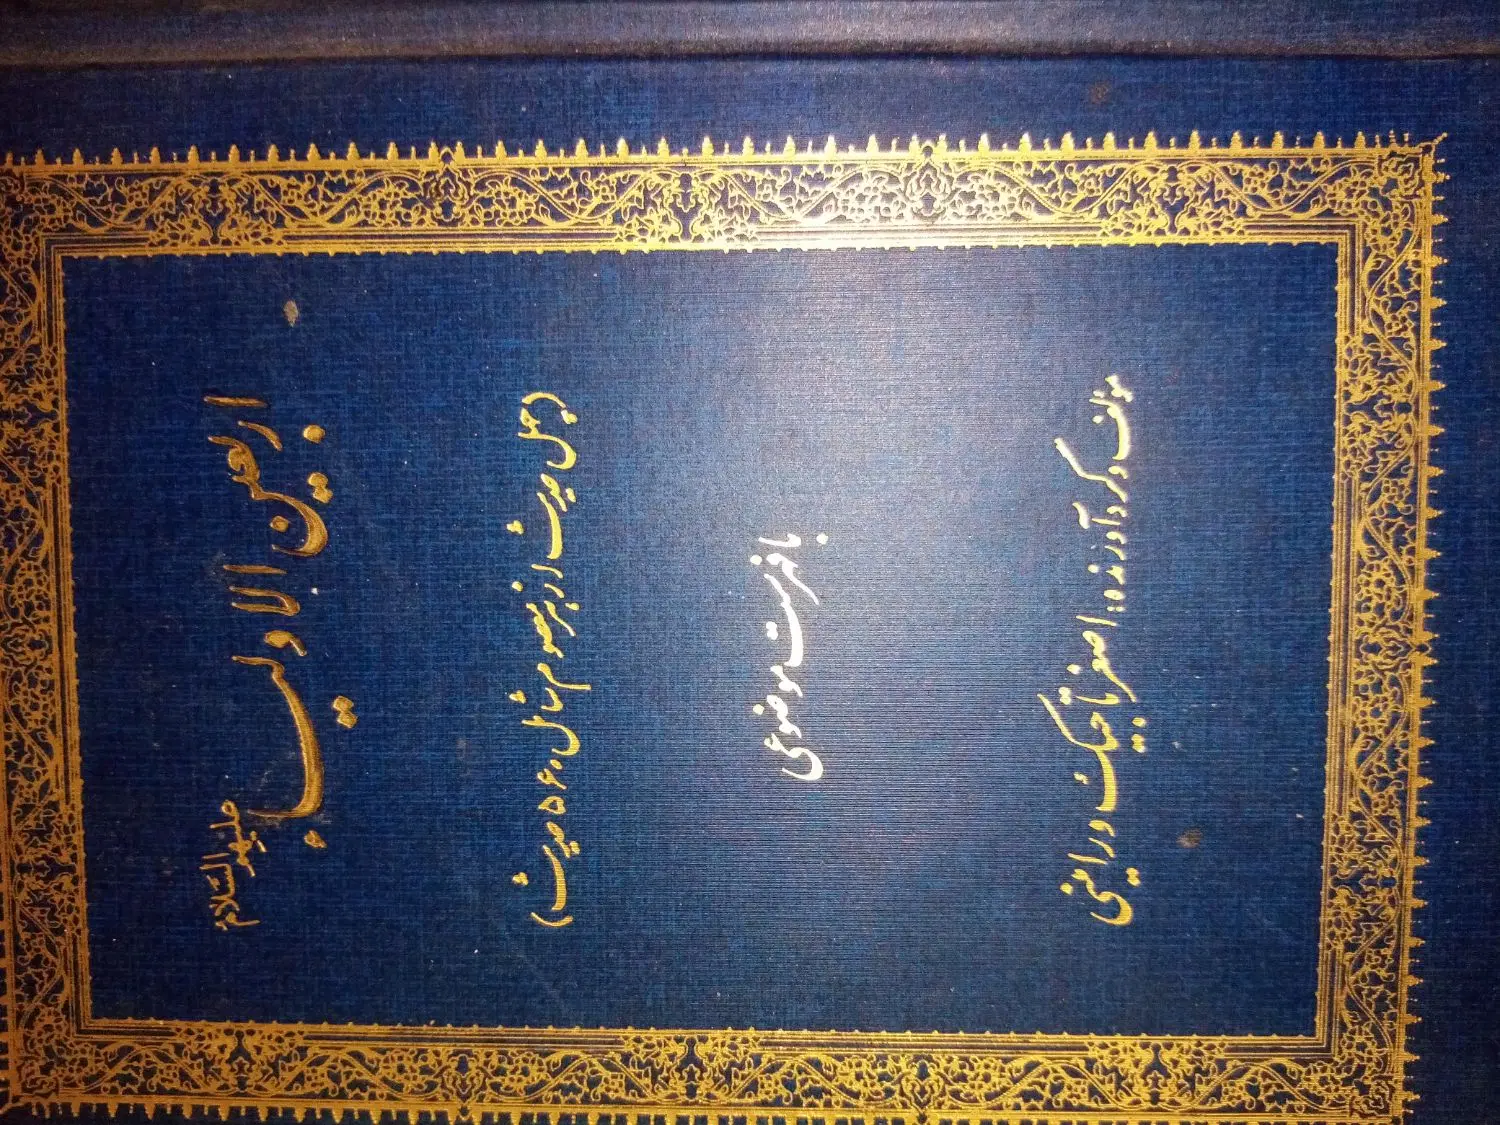 اربعین الاولیب
علیهم السّلام
(چهل حدیث از هر معصوم شامل ۵۶۰ حدیث)
با فهرست موضوعی
مؤلف و گردآورنده: اصغر تاجیک ورامینی